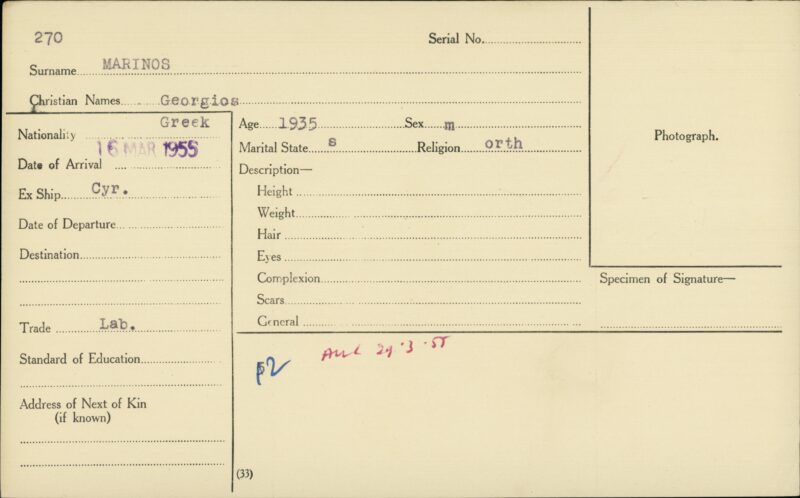 270
Serial No.
Surname MARINOS
Christian Names Georgios
Nationality Greek
16 MAR 1955
Date of Arrival
Ex Ship Cyr.
Date of Departure
Destination
Trade Lab.
Standard of Education
Address of Next of Kin
(if known)
Age 1935 Sex m
Marital State s Religion orth
Description—
Height
Weight
Hair
Eyes
Complexion
Scars
General
Photograph.
Specimen of Signature—
29.3.55
(33)